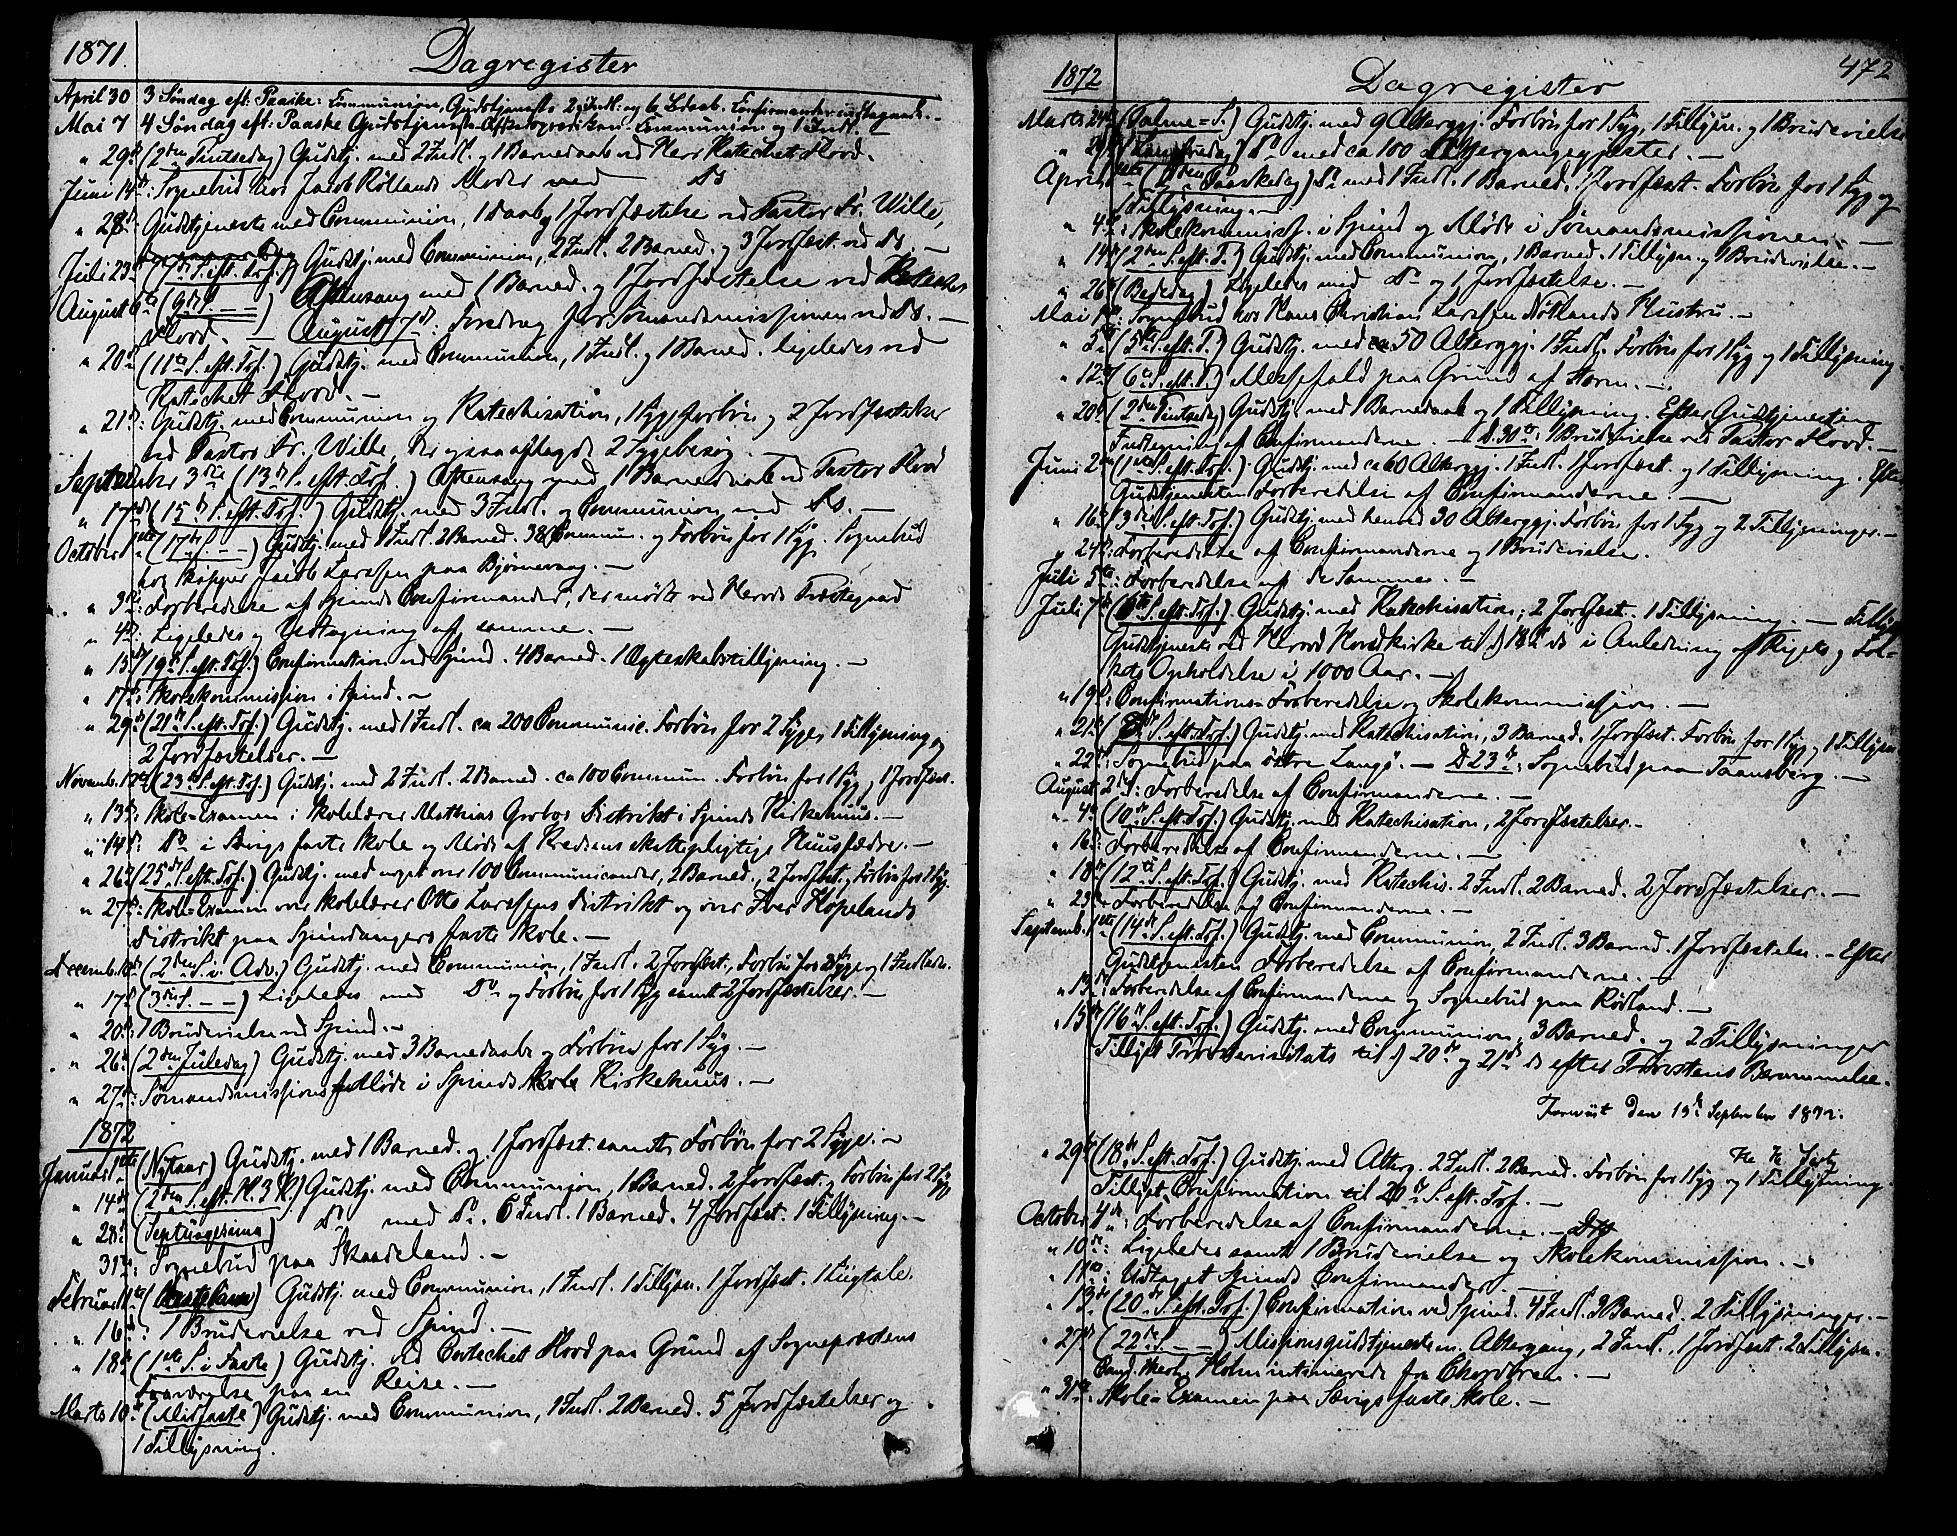 1871.
Dagregister
April 30 3 Søndag eft: Paaske: Communion, Gudstjeneste 2 Indl: og 6 Bdaab. Confirmander indtagende. -
Mai 7 4 Søndag eft: Paaske Gudstjeneste Communion 1 Indl. -
" 29de (2den Pintsedag) Gudstj. med 2 Indl. og 1 Barnedaab ved Herr Katechet Hord.
Juni 14de: Sognebud hos Jacob Røllands Moder ved Ds
" 28de: Gudstjeneste med Communion, 1 Daab, 1 Jordfæstelse ved Pastor Fr. Wille,
Juli 23de (7de S. eft. Tref.) Gudstj. med Communion, 2 Indl. 2 Barned. og 3 Jordfæst. ved Ds. -
August 6te (9de S. - -) Aftensang med 1 Barned. og 1 Jordfæstelse ved Katechet
Hord. - August 7de. Foredrag for Sømandsmissionen ved Ds. -
" 20de (11te S. eft. Tref.) Gudstj. med Communion, 1 Indl. og 1 Barned. ligeledes ved
Katechet Hord. -
" 21de: Gudstj. med Communion og Katechisation, 1 Syg Forbøn og 2 Jordfæstelser
ved Pastor Fr. Wille, der ogsaa aflagde 2 Sygebesøg. -
September 3die (13de S. eft. Tref.) Aftensang med 1 Barnedaab ved Pastor Hord
" 17de (15de S. eft. Tref.) Gudstj. med 3 Indl. og Communion ved Ds. -
October 1ste (17de S. - -) Gudstj. med 1 Indl. 2 Barned. 38 Commun. og Forbøn for 1 Syg. Sognebud
hos Skipper Jacob Larssen paa Bjørnevaag. -
" 3die: Forberedelse af Spinds Confirmander, der mødte ved Herods Præstegaard
" 4de: Ligeledes og Udtagning af samme. -
" 15de (19de S. eft. Tref.) Confirmation ved Spind. 4 Barned. 1 Ægteskabstillysning. -
" 17de: Skolekommission i Spind. -
" 29de (21de S. eft. Tref.) Gudstj. med 1 Indl. ca 200 Communic. Forbøn for 2 Syge, 1 Tillysning og
2 Jordfæstelser. -
Novemb. 12te (23de S. eft. Tref.) Gudstj. med 2 Indl. 2 Barned. ca 100 Commun. Forbøn for 1 Syg, 1 Jordfæst.
" 13de: Skole-Examen i Skolelærer Mathias Grobos Distrikt i Spinds Kirkehuus. -
" 14de: Do i Aavigs faste Skole og Møde af Kredsens skattepligtige Huusfædre. -
" 26de (25de S. eft. Tref.) Gudstj. med noget over 100 Communicander, 2 Barned., 2 Jordfæst. og Forbøn for 1 Syg.
" 27de: Skole-Examen over Skolelærer Otto Larssens Distrikt og over Iver Høpelands
Distrikt paa Spindangers faste Skole. -
Decemb. 10de (2den S. i Adv.) Gudstj. med Communion, 1 Indl. 2 Jordfæst., Forbøn for 2 Syge og 1 Indledn.
" 17de (3die S. - -) Ligeledes med Do og Forbøn for 1 Syg samt 2 Jordfæstelser. -
" 20de: 1 Brudevielse ved Spind. -
" 26de (2den Juledag) Gudstj. med 3 Barnedaab og Forbøn for 1 Syg. -
" 27de: Sømandsmissions Møde i Spinds Kirkehuus. -
1872
Januar 1ste (Nytaar) Gudstj. med 1 Barned. og 1 Jordfæst. samt Forbøn for 2 Syge. -
" 14de (2den S. eft. H. 3 K.) Gudstj. med Communion, 1 Barned. 2 Jordfæst. og Forbøn for 2 Syg
" 28de (Septuagesima) Do med Do. 6 Indl. 1 Barned. 4 Jordfæst. 1 Tillysning. -
31te: Sognebud paa Skaadeland. -
Februar 11te (Fastelavn) Gudstj. med Communion, 1 Indl. 1 Tillysn. 1 Jordfæst. 1 Liigtale.
" 16de: 1 Brudevielse ved Spind. -
" 18de (1ste S. i Faste) Gudstj. ved Catechet Hord paa Grund af Sognepræstens
Fraværelse paa en Reise. -
Marts 10de (Midfaste) Gudstj. med Communion, 1 Indl. 2 Barned. 5 Jordfæstelser og
1 Tillysning.
1872
Dagregister
472
Marts 24de (Palme=S.) Gudstj. med 9 Alterggj. Forbøn for 1 Syg, 1 Tillysn. og 1 Brudevielse
" 29de (Langfredag) Do med ca 100 Altergangsgjæster. -
April 1ste (2den Paaskedag) Do med 1 Indl. 1 Barned. 1 Jordfæst. Forbøn for 1 Syg og
1 Tillysning. -
" 4de: Skolekommiss. i Spind og Møde i Sømandsmissionen. -
" 14de (2den S. eft. P.) Gudstj. med Communion, 1 Barned. 1 Tillysn. og 1 Brudevielse. -
" 26de (Bededag) Ligeledes med Do og 1 Jordfæstelse. -
Mai 1ste: Sognebud hos Hans Christian Larssen Nøtlands Hustru. -
" 5te (5te S. eft. P.) Gudstj. med ca 50 Alterggj. 1 Indl. Forbøn for 1 Syg og 1 Tillysning.
" 12te (6te S. eft. P.) Messefald paa Grund af Storm. -
" 20de (2den Pintsedag) Gudstj. med 1 Barnedaab og 1 Tillysning. Efter Gudstjenesten
Indtegning af Confirmanderne. - D. 30te: 1 Brudevielse ved Pastor Hord. -
Juni 2den (1ste S. eft. Tref.) Gudstj. med ca 60 Alterggj. 1 Indl. 1 Jordfæst. og 1 Tillysning. Efter
Gudstjenesten Forberedelse af Confirmanderne. -
" 16de (3die S. eft. Tref.) Gudstj. med henved 30 Alterggj. Forbøn for 1 Syg og 2 Tillysninger. -
" 24de: Forberedelse af Confirmanderne og 1 Brudevielse.
Juli 5te: Forberedelse af de Samme. -
Juli 7de (6te S. eft. Tref.) Gudstj. med Katechisation; 2 Jordfæst. 1 Tillysning. - Tillyst
Gudstjeneste ved Herod Hovedkirke til d. 18de ds i Anledning af Rigets og Fol=
kets Opholdelse i 1000 Aar. -
" 19de: Confirmations-Forberedelse og Skolekommission. -
" 21de (8de S. eft. Tref.) Gudstj. med Katechisation, 3 Barned. 1 Jordfæst. Forbøn for 1 Syg og 1 Tillysn.
" 22de: Sognebud paa østre Langø. - D. 23de: Sognebud paa Taansberg. -
August 2den: Forberedelse af Confirmanderne. -
" 4de (10de S. eft. Tref.) Gudstj. med Katechisation, 2 Jordfæstelser. -
" 16de: Forberedelse af Confirmanderne. -
" 18de (12te S. eft. Tref.) Gudstj. med Katechis. 2 Indl. 2 Barned. 2 Jordfæstelser. -
" 23de: Forberedelse af Confirmanderne. -
Septemb. 1ste (14de S. eft. Tref.) Gudstj. med Communion, 2 Indl. 3 Barned. 1 Jordfæstelse. - Efter
Gudstjenesten Forberedelse af Confirmanderne. -
" 13de: Forberedelse af Confirmanderne og Sognebud paa Rødland. -
" 15de (16de S. eft. Tref.) Gudstj. med Communion, 3 Barned. og 2 Tillysninger
Tillyst Provstevisitats til d. 20de og 21de ds efter Provstens Berammelse.
den 19de September 1872.
" 29de (18de S. eft. Tref.) Gudstj. med Alterg. 2 Indl. 2 Barned. Forbøn for 1 Syg og 1 Tillysning.
Tillyst Confirmation til 20de S. eft. Tref. -
October 4de: Forberedelse af Confirmanderne. -
" 10de: Ligeledes samt 1 Brudevielse og Skolekommission. -
" 11te: Udtaget Spinds Confirmander. -
" 13de (20de S. eft. Tref.) Confirmation ved Spind. 4 Indl. 3 Barned. 2 Tillysninger. -
" 27de (22de S. - -) Missionsgudstjeneste m. Altergang, 2 Indl. 1 Jordfæst. 2 Tillysn.
Cand. Holm intonerede fra Chordøren. -
" 31te: Skole-Examen paa Sævigs faste Skole. -